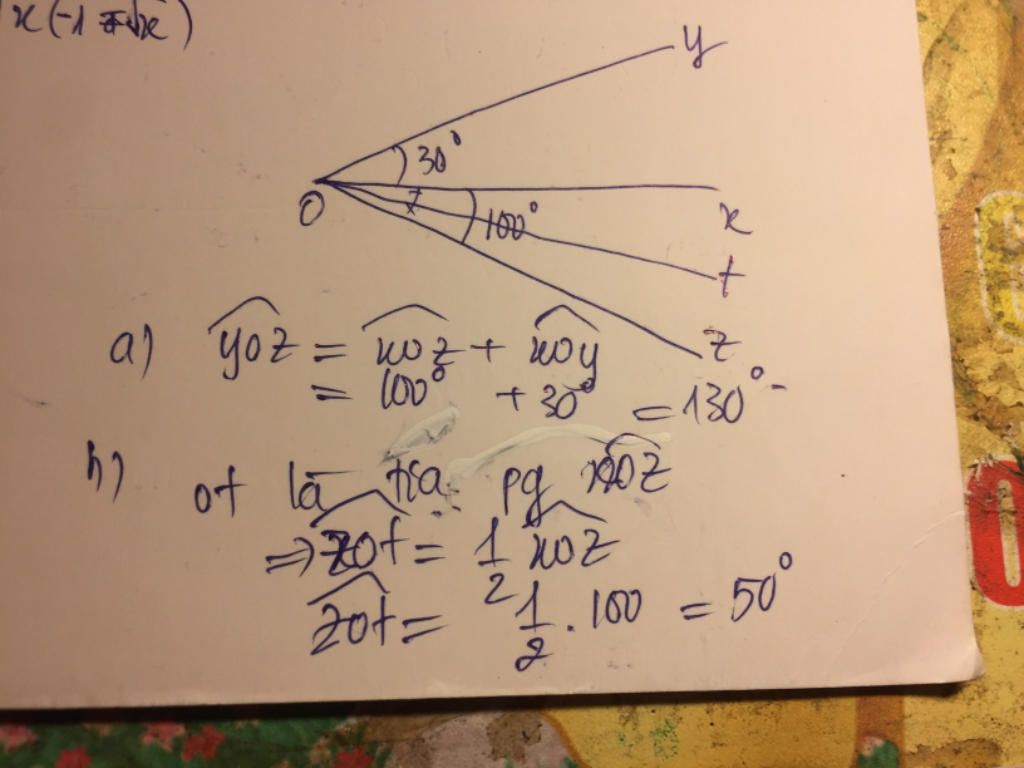 x(-1+√x)
y
30°
O
x
100°
t
z
a) yoz = xoz + xoy
= 100° + 30° = 130°
b) ot là tia pg xoz
⇒ zot = 1/2 xoz
zot = 1/2 . 100 = 50°